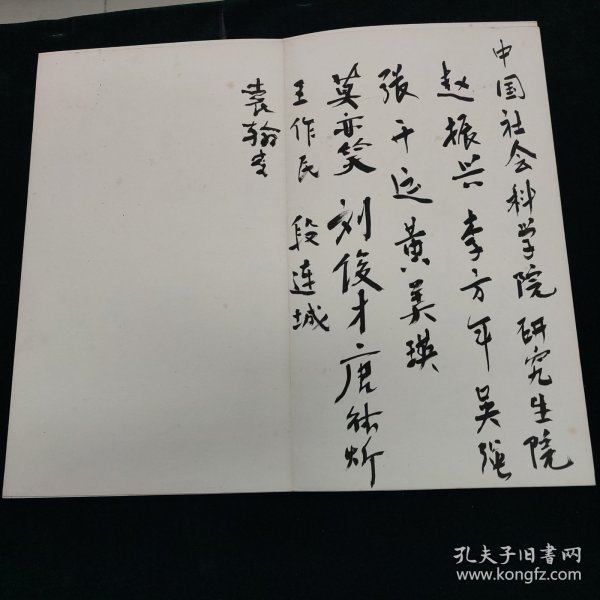 中国社会科学院研究生院
赵振兴 李方年 吴强
张千运 黄美瑛
莫亦笑 刘俊才 唐 炘
王作民 段连城
袁翰青
孔夫子旧书网
www.kongfz.com